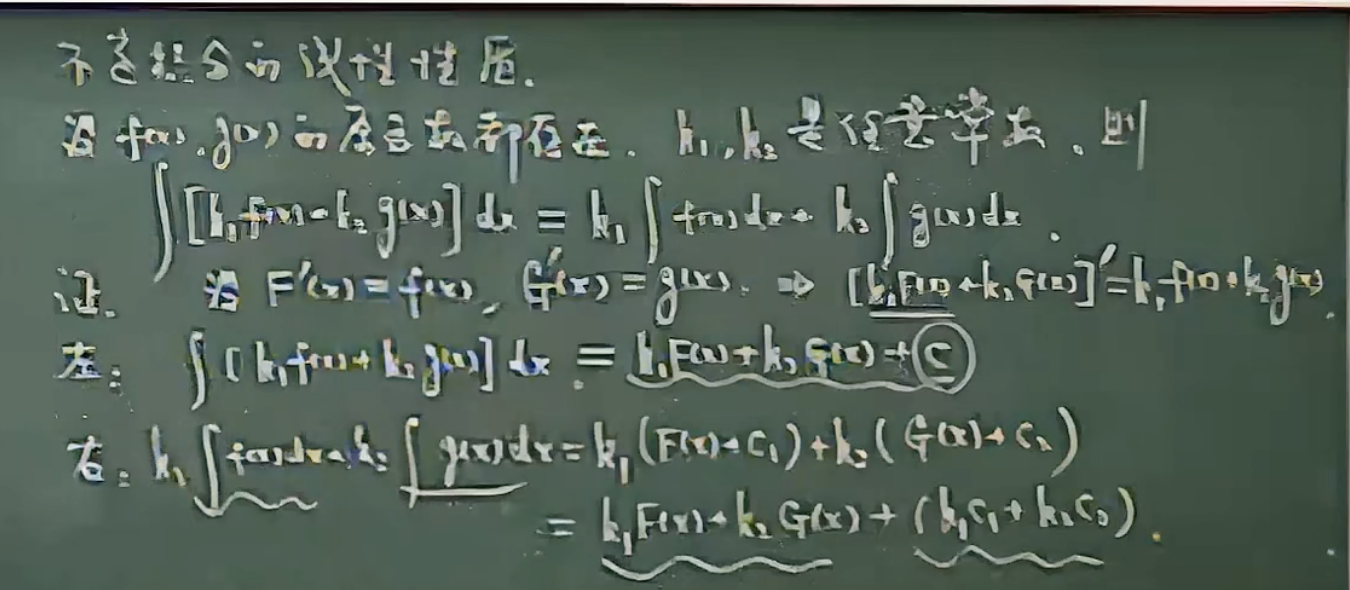 不定积分的线性性质.
若 f(x), g(x) 的原函数都存在. k₁, k₂ 是任意常数, 则
∫[k₁f(x)+k₂g(x)]dx = k₁∫f(x)dx + k₂∫g(x)dx.
证. 若 F'(x)=f(x), G'(x)=g(x). ⇒ [k₁F(x)+k₂G(x)]'=k₁f(x)+k₂g(x).
左: ∫[k₁f(x)+k₂g(x)]dx = k₁F(x)+k₂G(x)+C
右: k₁∫f(x)dx+k₂∫g(x)dx = k₁(F(x)+C₁)+k₂(G(x)+C₂)
= k₁F(x)+k₂G(x)+(k₁C₁+k₂C₂).